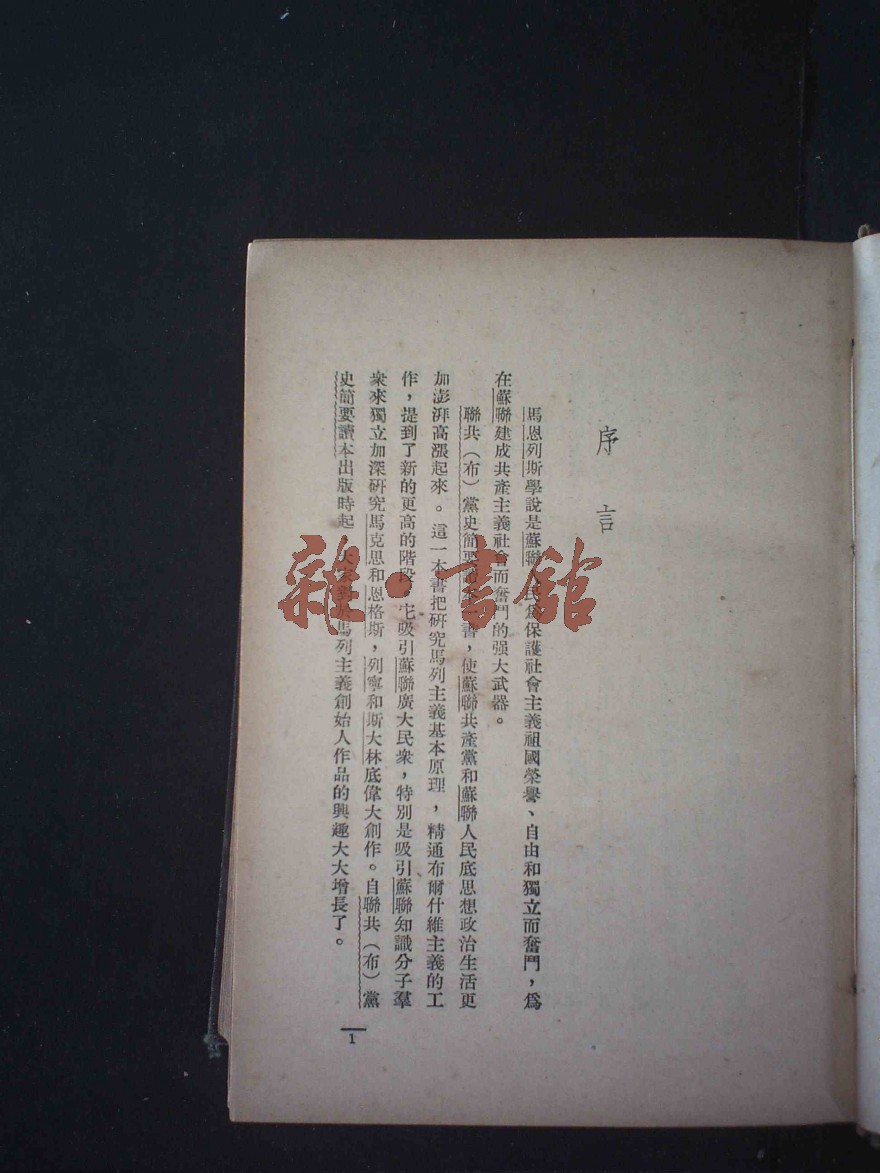 序言
馬恩列斯學說是蘇聯人民爲保護社會主義祖國榮譽、自由和獨立而奮鬥，爲
在蘇聯建成共產主義社會而奮鬥的强大武器。
聯共（布）黨史簡要讀本一書，使蘇聯共產黨和蘇聯人民底思想政治生活更
加澎湃高漲起來。這一本書把研究馬列主義基本原理，精通布爾什維主義的工
作，提到了新的更高的階段，它吸引蘇聯廣大民衆，特別是吸引蘇聯知識分子羣
衆來獨立加深研究馬克思和恩格斯，列寧和斯大林底偉大創作。自聯共（布）黨
史簡要讀本出版時起，大家對於馬列主義創始人作品的興趣大大增長了。
1
雜·書館